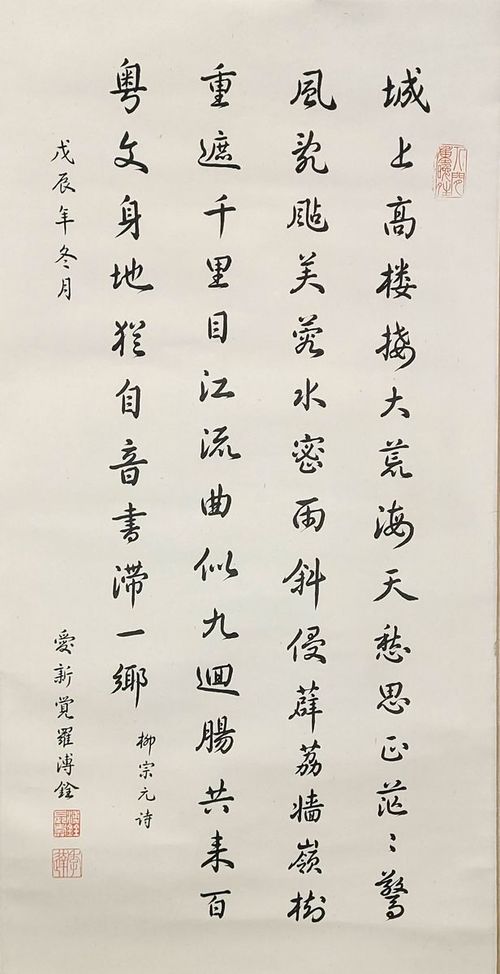 城上高楼接大荒海天愁思正茫〻驚
風亂颭芙蓉水密雨斜侵薜荔墙嶺樹
重遮千里目江流曲似九迴腸共来百
粤文身地猶自音書滞一鄉
柳宗元诗
戊辰年冬月
愛新覺羅溥銓